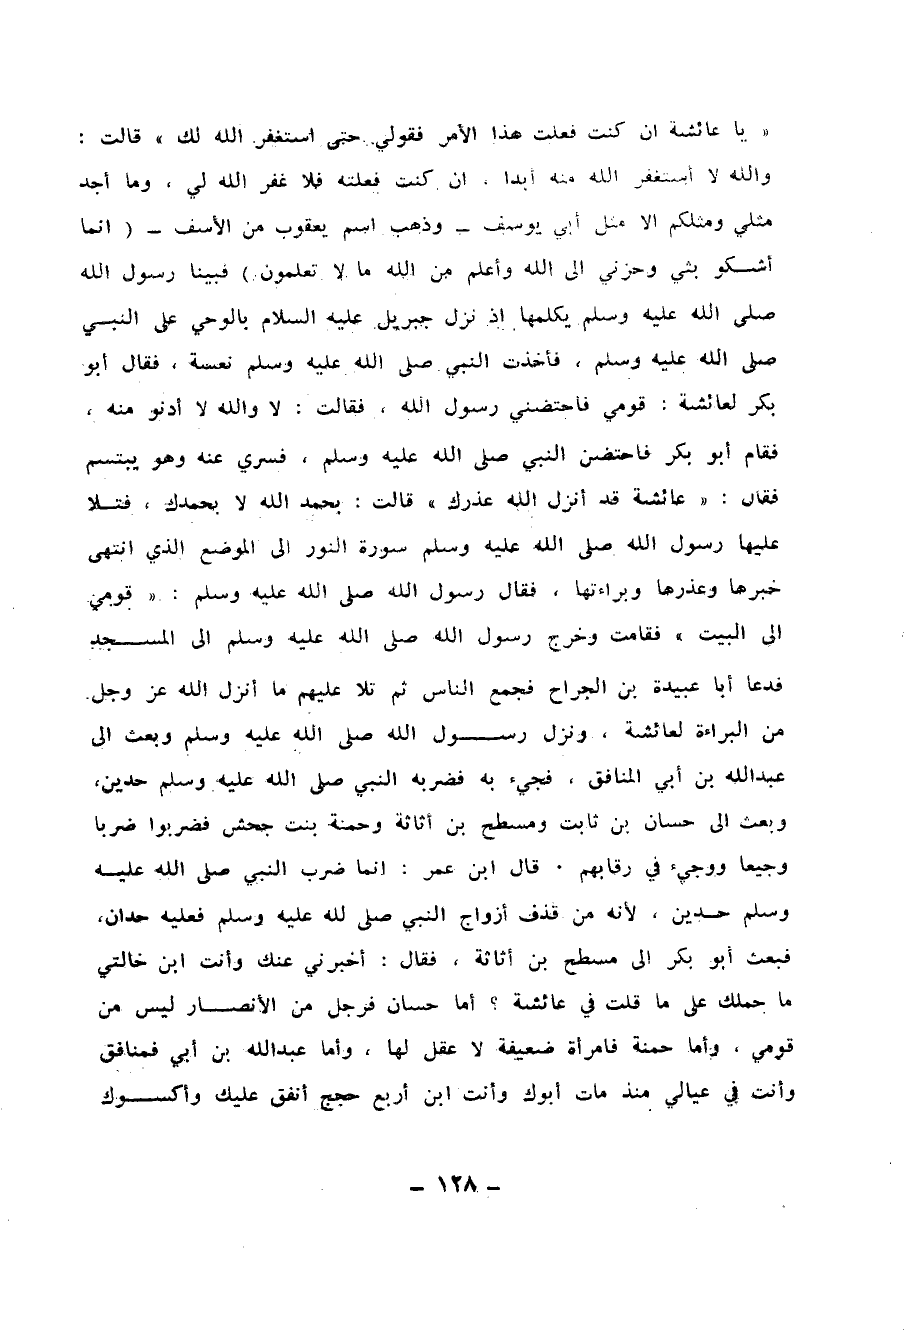 « يا عائشة ان كنت فعلت هذا الأمر فقولي حتى استغفر الله لك » قالت :
والله لا أستغفر الله منه أبدا ، ان كنت فعلته فلا غفر الله لي ، وما أجد
مثلي ومثلكم الا مثل أبي يوسف ــ وذهب اسم يعقوب من الأسف ــ ( انما
أشكو بثي وحزني الى الله وأعلم من الله ما لا تعلمون ) فبينا رسول الله
صلى الله عليه وسلم يكلمها اذ نزل جبريل عليه السلام بالوحي على النبي
صلى الله عليه وسلم ، فأخذت النبي صلى الله عليه وسلم نعسة ، فقال أبو
بكر لعائشة : قومي فاحتضني رسول الله ، فقالت : لا والله لا أدنو منه ،
فقام أبو بكر فاحتضن النبي صلى الله عليه وسلم ، فسري عنه وهو يبتسم
فقال : « عائشة قد أنزل الله عذرك » قالت : بحمد الله لا بحمدك ، فتلا
عليها رسول الله صلى الله عليه وسلم سورة النور الى الموضع الذي انتهى
خبرها وعذرها وبراءتها ، فقال رسول الله صلى الله عليه وسلم : « قومي
الى البيت » فقامت وخرج رسول الله صلى الله عليه وسلم الى المسجد
فدعا أبا عبيدة بن الجراح فجمع الناس ثم تلا عليهم ما أنزل الله عز وجل
من البراءة لعائشة ، ونزل رسول الله صلى الله عليه وسلم وبعث الى
عبدالله بن أبي المنافق ، فجيء به فضربه النبي صلى الله عليه وسلم حدين،
وبعث الى حسان بن ثابت ومسطح بن أثاثة وحمنة بنت جحش فضربوا ضربا
وجيعا ووجيء في رقابهم ٠ قال ابن عمر : انما ضرب النبي صلى الله عليه
وسلم حدين ، لأنه من قذف أزواج النبي صلى لله عليه وسلم فعليه حدان،
فبعث أبو بكر الى مسطح بن أثاثة ، فقال : أخبرني عنك وأنت ابن خالتي
ما حملك على ما قلت في عائشة ؟ أما حسان فرجل من الأنصار ليس من
قومي ، وأما حمنة فامرأة ضعيفة لا عقل لها ، وأما عبدالله بن أبي فمنافق
وأنت في عيالي منذ مات أبوك وأنت ابن أربع حجج أنفق عليك وأكسوك
– ١٢٨ –